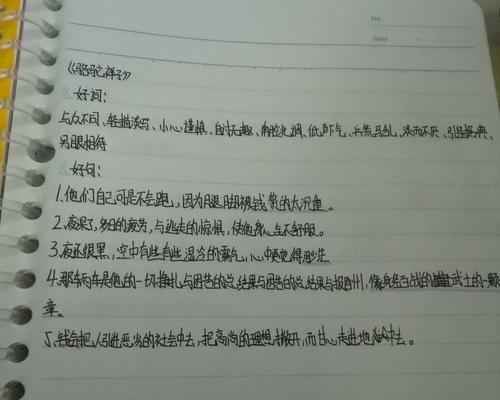 No.
Date
《骆驼祥子》
好词：
与众不同、轻描淡写、小心谨慎、自讨无趣、南腔北调、低声下气、兵荒马乱、浓而不厌、引经据典、
另眼相待
好句：
1.他们自己可是不会跑，因为腿脚被钱赘的太沉重。
2.夜深了，多日的疲劳，与逃走的惊惧，使他身心全不舒服。
3.夜还很黑，空中有些有些湿冷的雾气，心中更觉得渺茫
4.那辆车是他的一切挣扎与困苦的总结果与困苦的总结果与报酬，像身经百战的武士的一颗
章。
5.钱会把人引进恶劣的社会中去，把高尚的理想撇开，而甘心走进地狱中去。